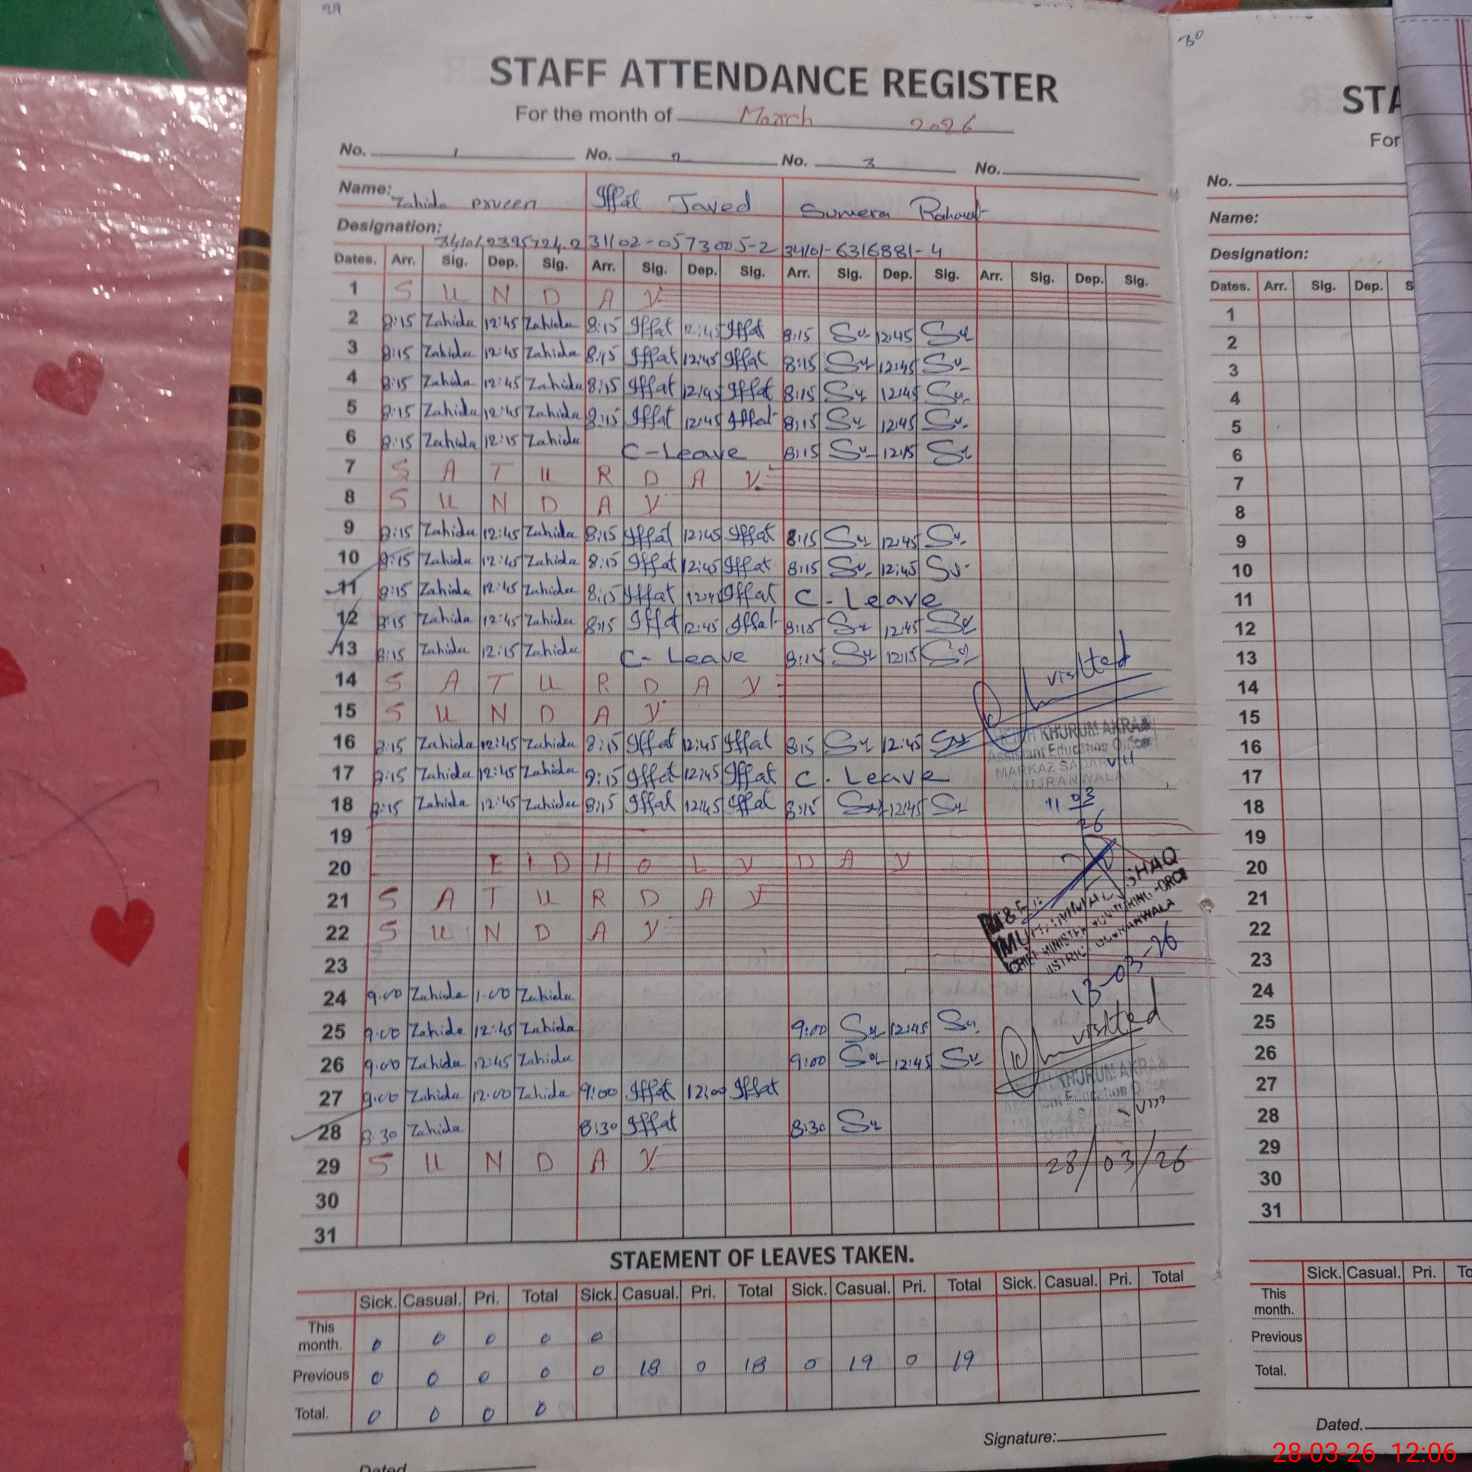 29
STAFF ATTENDANCE REGISTER
For the month of March 2026
No. 1 No. 2 No. 3 No.
Name: Zahida Prveen Iffat Javed Sumera
Designation: 31102-0573005-2 34101-6316881-4
Dates. Arr. Sig. Dep. Sig. Arr. Sig. Dep. Sig. Arr. Sig. Dep. Sig. Arr. Sig. Dep. Sig.
1 S U N D A Y
2 8:15 Zahida 12:45 Zahida 8:15 Iffat 12:45 Iffat 8:15 Su 12:45 Su
3 8:15 Zahida 12:45 Zahida 8:15 Iffat 12:45 Iffat 8:15 Su 12:45 Su
4 8:15 Zahida 12:45 Zahida 8:15 Iffat 12:45 Iffat 8:15 Su 12:45 Su
5 8:15 Zahida 12:45 Zahida 8:15 Iffat 12:45 Iffat 8:15 Su 12:45 Su
6 8:15 Zahida 12:15 Zahida C-Leave 8:15 Su 12:15 Su
7 S A T U R D A Y
8 S U N D A Y
9 8:15 Zahida 12:45 Zahida 8:15 Iffat 12:45 Iffat 8:15 Su 12:45 Su
10 8:15 Zahida 12:45 Zahida 8:15 Iffat 12:45 Iffat 8:15 Su 12:45 Su
11 8:15 Zahida 12:45 Zahida 8:15 Iffat 12:45 Iffat C-Leave
12 8:15 Zahida 12:45 Zahida 8:15 Iffat 12:45 Iffat 8:15 Su 12:45 Su
13 8:15 Zahida 12:15 Zahida C-Leave 8:15 Su 12:15 Su
visited
14 S A T U R D A Y
15 S U N D A Y
KHURUM AKRAM
16 8:15 Zahida 12:45 Zahida 8:15 Iffat 12:45 Iffat 8:15 Su 12:45 Su
Assistant Education Officer
17 8:15 Zahida 12:45 Zahida 8:15 Iffat 12:45 Iffat C. Leave
MARKAZ SADAR VII
GUJRANWALA
18 8:15 Zahida 12:45 Zahida 8:15 Iffat 12:45 Iffat 8:15 Su 12:45 Su
11 03
26
19
20 E I D H O L Y D A Y
21 S A T U R D A Y
22 S U N D A Y
23
13-03-26
24 9:00 Zahida 1:00 Zahida
25 9:00 Zahida 12:45 Zahida 9:00 Su 12:45 Su
visited
26 9:00 Zahida 12:45 Zahida 9:00 Su 12:45 Su
KHURUM AKRAM
27 9:00 Zahida 12:00 Zahida 9:00 Iffat 12:00 Iffat
28 8:30 Zahida 8:30 Iffat 8:30 Su
29 S U N D A Y
28/03/26
30
31
STAEMENT OF LEAVES TAKEN.
Sick. Casual. Pri. Total Sick. Casual. Pri. Total Sick. Casual. Pri. Total Sick. Casual. Pri. Total
This month. 0 0 0 0 0
Previous 0 0 0 0 0 18 0 18 0 19 0 19
Total. 0 0 0 0
Signature:
Dated
30
STA
For
No.
Name:
Designation:
Dates. Arr. Sig. Dep. S
1
2
3
4
5
6
7
8
9
10
11
12
13
14
15
16
17
18
19
20
21
22
23
24
25
26
27
28
29
30
31
Sick. Casual. Pri. To
This month.
Previous
Total.
Dated.
28-03-26 12:06